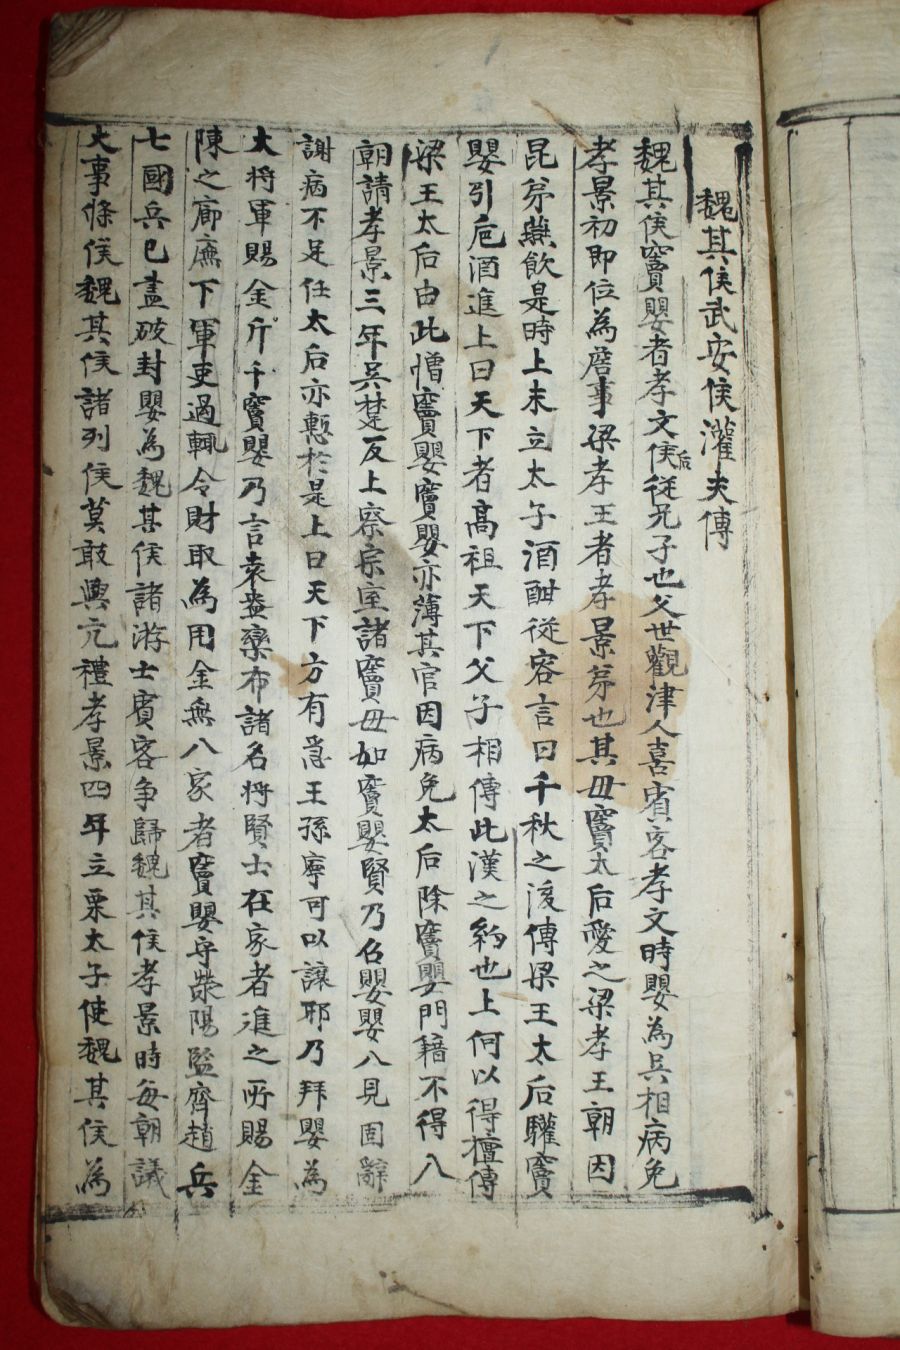 魏其侯武安侯灌夫傳
魏其侯竇嬰者孝文侯后從兄子也父世觀津人喜賓客孝文時嬰為吳相病免
孝景初即位為詹事梁孝王者孝景弟也其母竇太后愛之梁孝王朝因
昆弟燕飲是時上未立太子酒酣從容言曰千秋之後傳梁王太后驩竇
嬰引巵酒進上曰天下者高祖天下父子相傳此漢之約也上何以得擅傳
梁王太后由此憎竇嬰竇嬰亦薄其官因病免太后除竇嬰門籍不得八
朝請孝景三年吳楚反上察宗室諸竇毋如竇嬰賢乃召嬰嬰八見固辭
謝病不足任太后亦慙於是上曰天下方有急王孫寧可以讓耶乃拜嬰為
大將軍賜金斤千竇嬰乃言袁盎欒布諸名將賢士在家者進之所賜金
陳之廊廡下軍吏過輒令財取為用金無八家者竇嬰守滎陽監齊趙兵
七國兵已盡破封嬰為魏其侯諸游士賓客争歸魏其侯孝景時每朝議
大事條侯魏其侯諸列侯莫敢與亢禮孝景四年立栗太子使魏其侯為